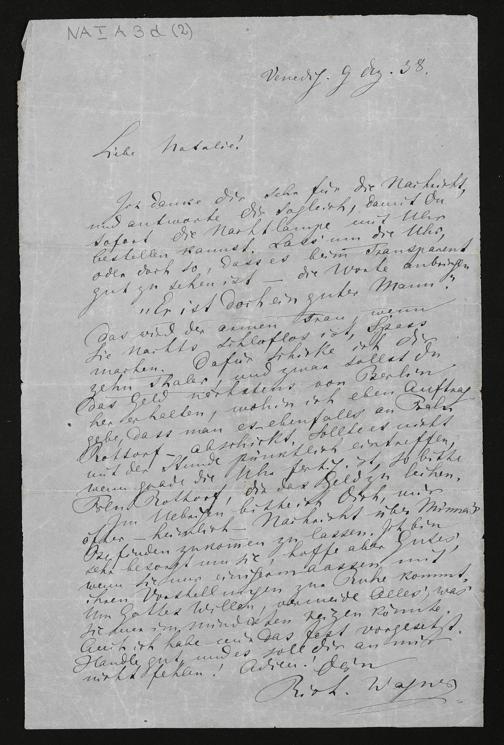 NA I A 3 d (2)
Venedig. 9 dez. 58.
Liebe Natalie!
Ich danke dir sehr für die Nachricht,
und antworte dir sogleich, damit Du
sofort die Nachtlampe mit Uhr
bestellen kannst. Lass' um die Uhr,
oder doch so, dass es beim Transparent
gut zu sehen ist — die Worte anbringen
"Er ist doch ein guter Mann!"
Das wird der armen Frau, wenn
sie Nachts schlaflos ist, Spass
machen. Dafür schicke ich dir
zehn Thaler, und zwar sollst du
das Geld nächstens von Berlin
her erhalten, wohin ich eben Auftrag
gebe, dass man es ebenfalls an
— abschickt. Sollte es nicht
mit der Stunde pünktlich eintreffen,
wenn grade die Uhr fertig ist, so bitte
, dir das Geld zu leihen.
Im Uebrigen bitte ich Dich, mir
öfter — heimlich — Nachricht über Minna's
Befinden zukommen zu lassen. Ich bin
sehr besorgt um sie, hoffe aber Gutes,
wenn sie nur einigermaassen mit
ihren Vorstellungen zur Ruhe kommt.
Um Gottes Willen, vermeide Alles, was
sie nur im mindesten reizen könnte.
Auch ich habe mir das fest vorgesetzt.
Handle gut, und es soll dir an mir
nicht fehlen! Adieu! Dein
Rich. Wagner